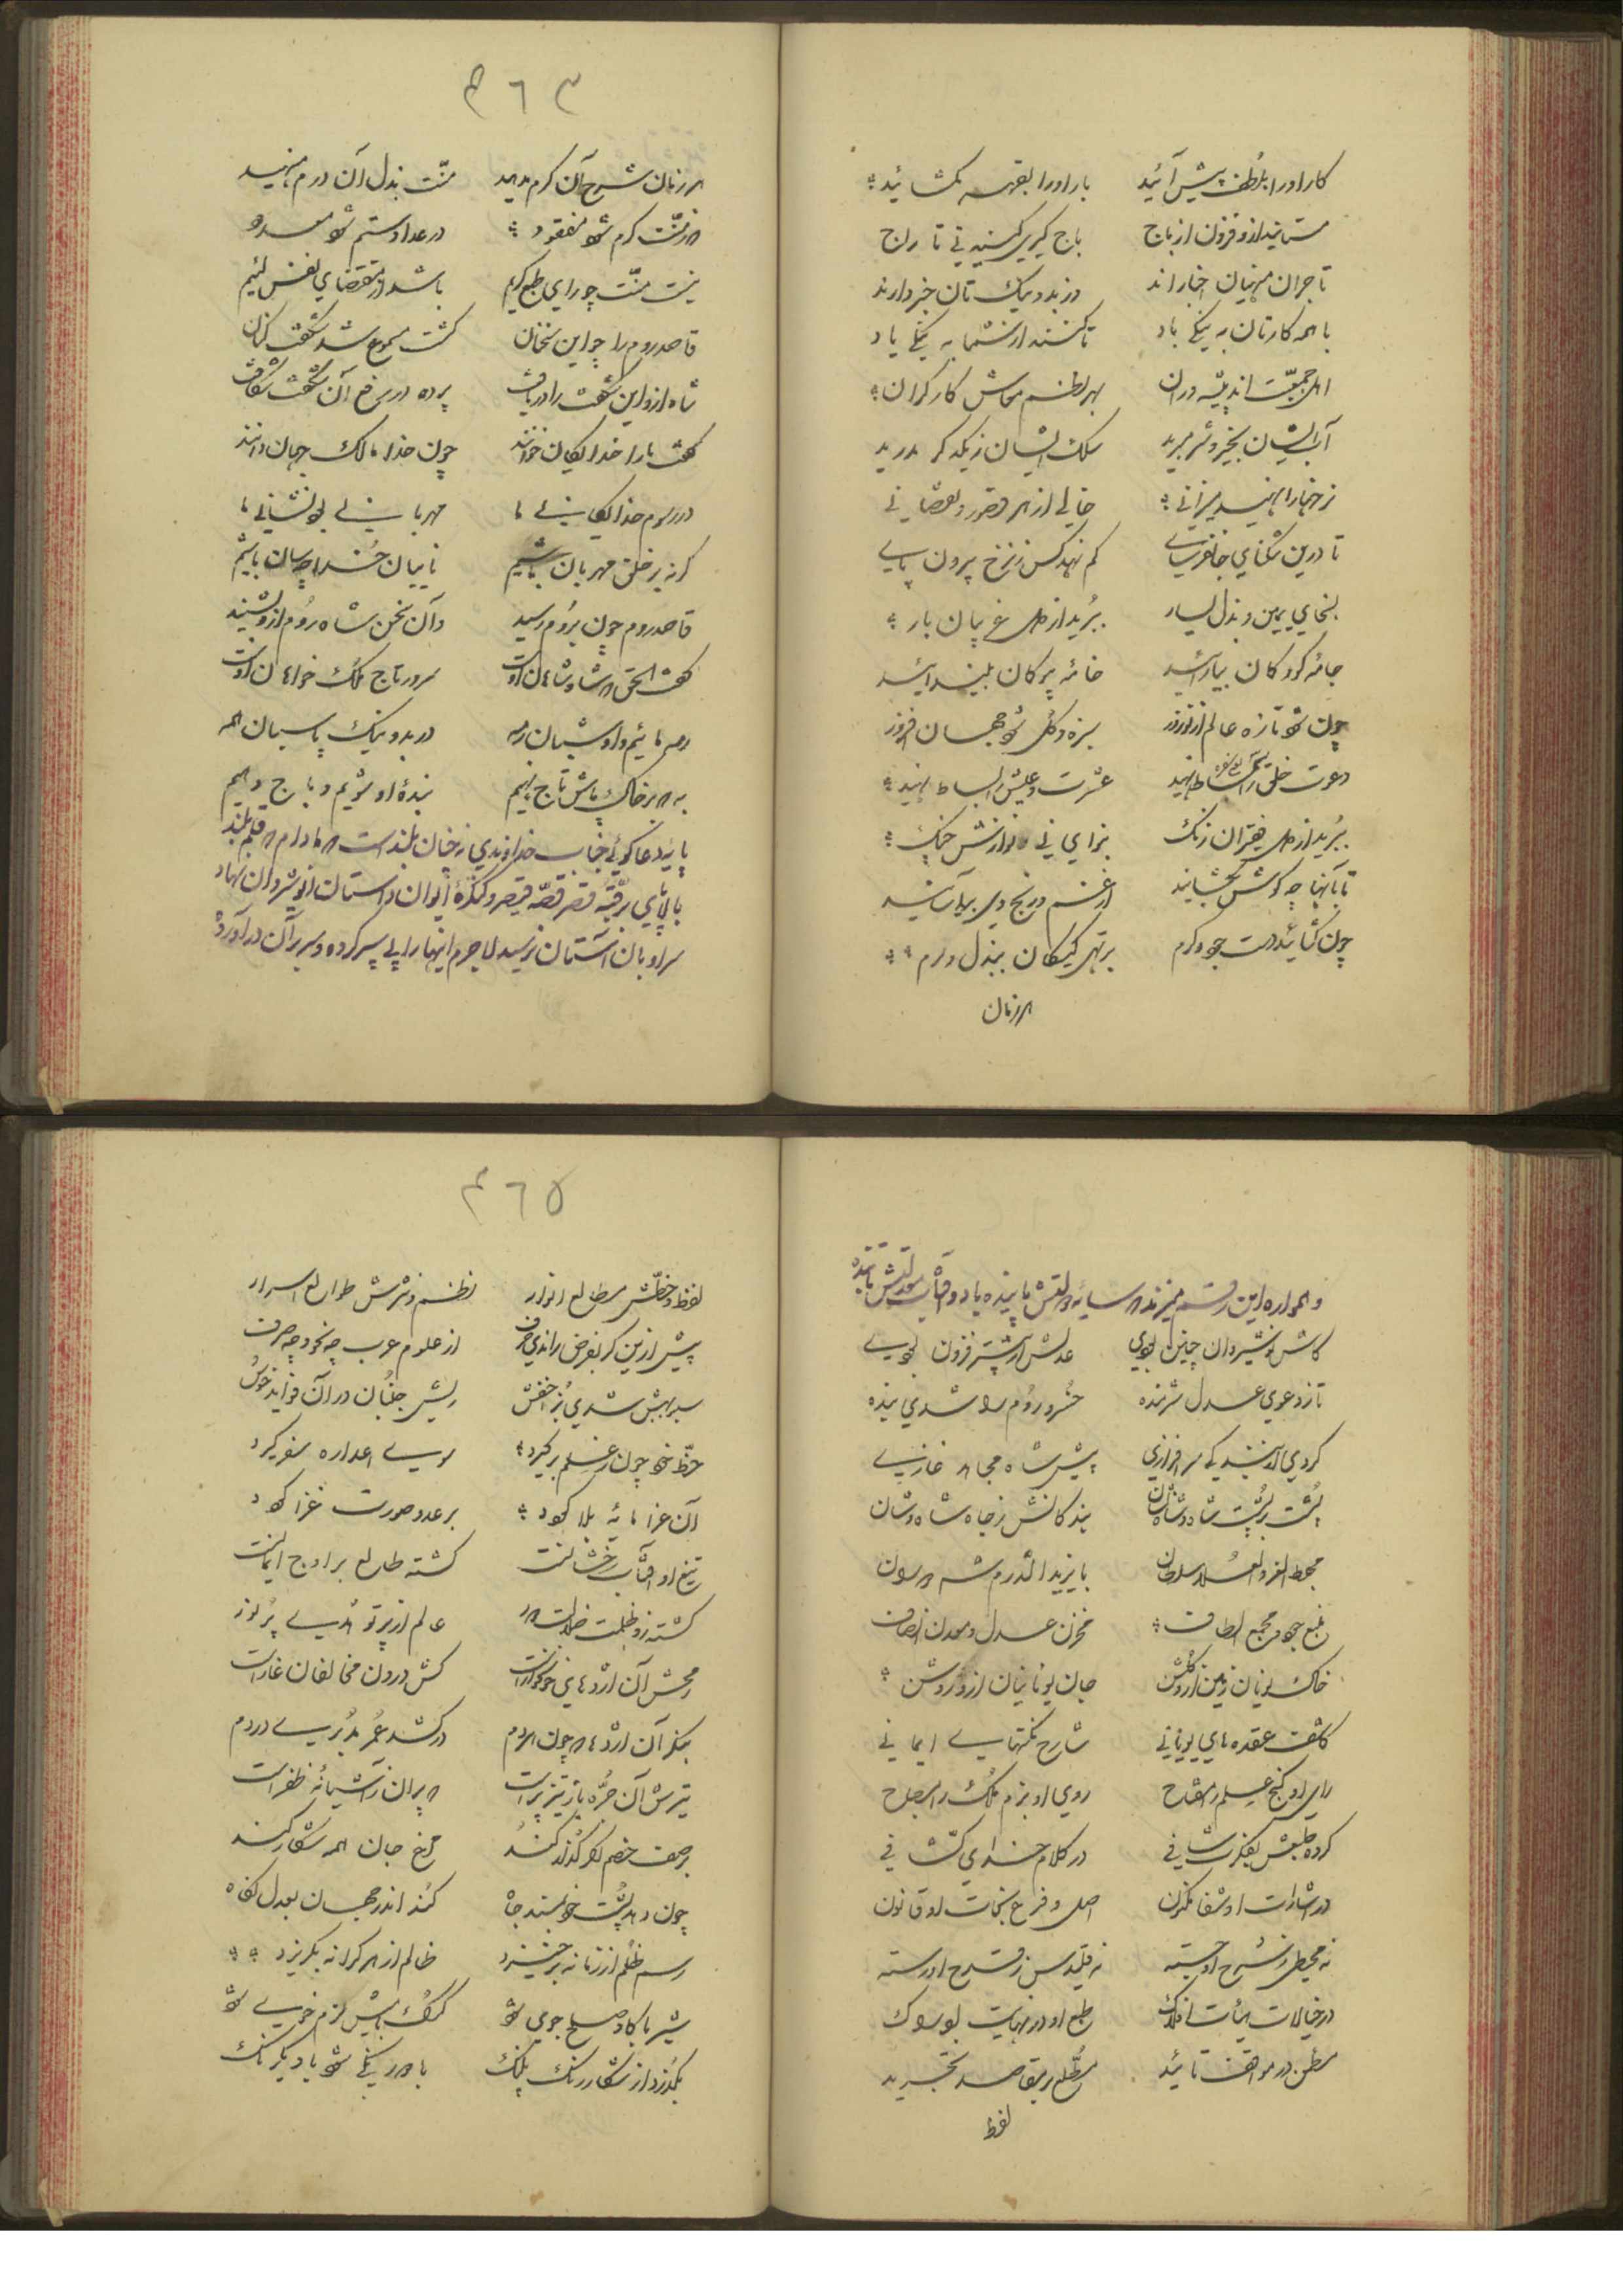 کار او را بلطف پیش آئید بار او را بقهر نگشائید
مستانید ازو فزون از باج باج گیری کنید نی تاراج
تاجران منهیان اخبارند وز بد و نیک تان خبر دارند
با همه کارتان به نیکی باد تا کنند از شما به نیکی یاد
اهل جمعیت اندیشه وران بهر نظم معاش کارگران
آب ایشان بخیر و شر مبرید سلک ایشان ز یکدگر مدرید
نرخها را نهید میزانی خالی از هر قصور و نقصانی
تا درین تنگنای جانفرسای کم نهد کس ز نرخ بیرون پای
بسخای یمین و بذل یسار ببرید از دل غریبان بار
جامهٔ کودکان بیارائید خانهٔ پیرکان بیندائید
چون شود تازه عالم از نوروز سبزه و گل شود جهان افروز
دعوت خلق را سماط نهید عشرت و عیش را بساط نهید
ببرید از دل فقیران زنگ بنوای نی و نوازش چنگ
تا بآنها چو گوش بگشایند از غم و رنج دل برآسایند
چون گشائید دست جود و کرم بر تهی کیسگان ببذل درم
هر زمان
۴۶۳
هر زمان شرح آن کرم مدهید منت بذل آن درم منهید
هر ز منت کرم شود مفقود در عداد ستم شود معدود
نیست منت چو رای طبع کریم باشد از مقتضای نفس لئیم
قاصد روم را چو این سخنان گشت مسموع شد شگفت کنان
شاه ازو این شگفت را دریافت پرده از رخ آن شگفت شکافت
گفت ما را خدایگان خوانند چون خدا مالک جهان دانند
در رسوم خدایگانی ما مهربانی بود نشانی ما
گر نه بر خلق مهربان باشیم نایبان خدا چه سان باشیم
قاصد روم چون بروم رسید وان سخن شاه روم ازو بشنید
گفت الحق که شاه شاهان اوست سرور تاج ملک خواهان اوست
رمه مائیم و او شبان رمه در بد و نیک پاسبان همه
به که بر خاک پاش تاج نهیم بندهٔ او شویم و باج دهیم
پایهٔ دعاگوئی جناب خداوندی نه چنان بلندست که مادام که قلم بلند
بالای برقبهٔ قصر قصهٔ قیصر و کنگرهٔ ایوان داستان انوشیروان ننهاد
سر او بان آستان نرسید لاجرم اینها را پی سپر کرده و سر بر آن درآورد
و همواره این رقم میزند که سایهٔ دولتش پاینده باد و آفتاب معدلتش تابنده
کاش نوشیروان چنین بودی عدلش از پیشتر فزون بودی
تا ز دعوی عدل شرمنده خسرو روم را شدی بنده
کردی از بندگی سرافرازی پیش شاه مجاهد غازی
پشت بر پشت شاه و شاه نشان بندگانش ز جاه شاه وشان
مهبط العز و العلی سلطان بایزید ایلدرم شه دوران
منبع جود و مجمع الطاف مخزن عدل و معدن انصاف
خاک یونان زمین ازو گلشن جان یونانیان ازو روشن
کاشف عقده های یونانی شارح نکتهای ایمانی
رای او گنج علم را مفتاح روی او بزم ملک را مصباح
کرده طبعش بفکرت شافی در کلام خدای کشافی
در اشارات او شفا مکنون اصل و فرع نجات او قانون
نه محیطی ز شرح او جسته نه قلیدس ز قدح او رسته
در خیالات هیأت افلاک طبع او در نهایت ادراک
مطمئن در مواقف تائید مطلع بر مقاصد تجرید
لفظ
۴۶۵
لفظ و خطش مطالع انوار نظم و نثرش طوالع اسرار
پیش ازین گر بفرض راندی حرف از علوم عرب چه نحو و چه صرف
سیبویهش شدی بز اخفش ریش جنبان در آن فواید خوش
حظ خود چون ز علم برگیرد سوی اعدا ره سفر گیرد
آن غزا مایهٔ بلا گردد بر عدو صورت غزا گردد
تیغ او آفتاب رخشانست گشته طالع بر اوج ایمانست
گشته زو ظلمت ضلالت دور عالم از پرتو هدی پر نور
رمحش آن اژدهای خونخوارست کش درون مخالفان غارست
بنگر آن اژدها که چون هر دم درکشد عمر مدبری در دم
تیرش آن جره باز تیزپرست که پران ز آشیانهٔ ظفرست
بر صف خصم اگر گذار کند مرغ جان همه شکار کند
چون دهد پشت خود بمسند جاه کند اندر جهان بعدل نگاه
رسم ظلم از زمانه برخیزد ظالم از هر کرانه بگریزد
شیر با گاو صلح جوی شود گرگ با میش نرم خوی شود
بگذرد از شکار رنگ پلنگ با هم در یکی شود یکرنگ